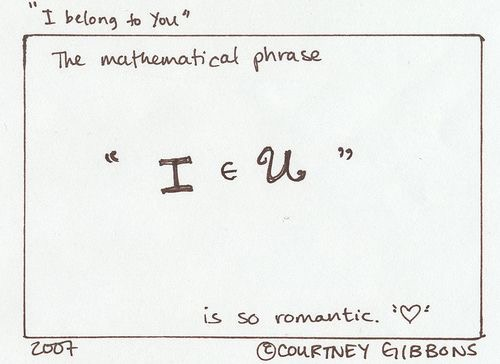 "I belong to You"
The mathematical phrase
" I ∈ U "
is so romantic.
2007
©COURTNEY GIBBONS